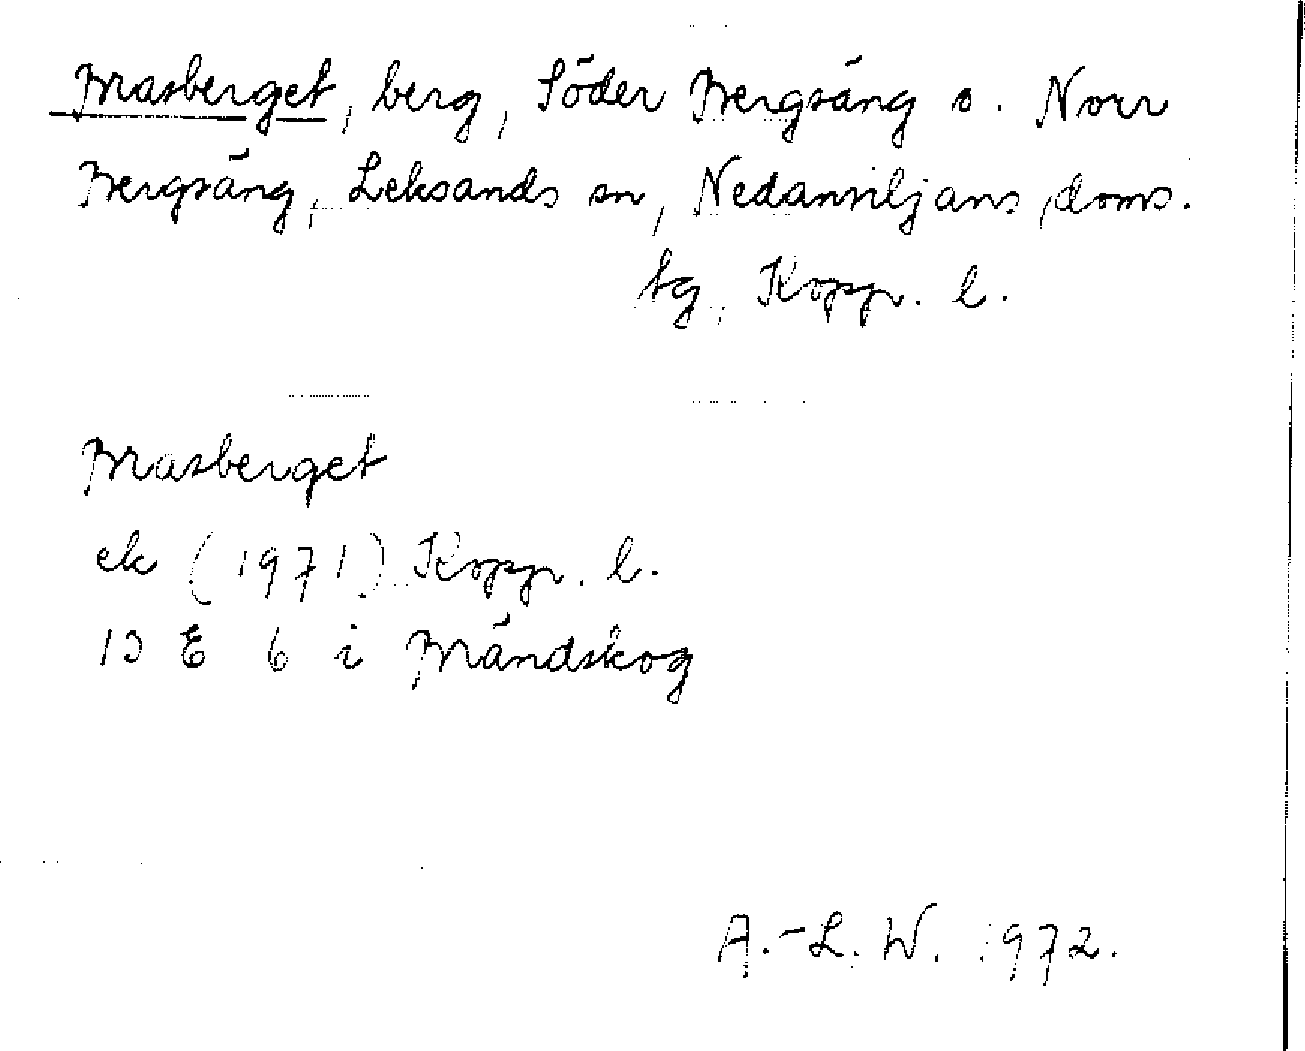 Brasberget, berg, Söder Bergsäng o. Norr
Bergsäng, Leksands sn, Nedansiljans doms.
tg, Kopp. l.
Brasberget
ek (1971) Kopp. l.
13 E 6 i Brändskog
A.-L. W. 1972.